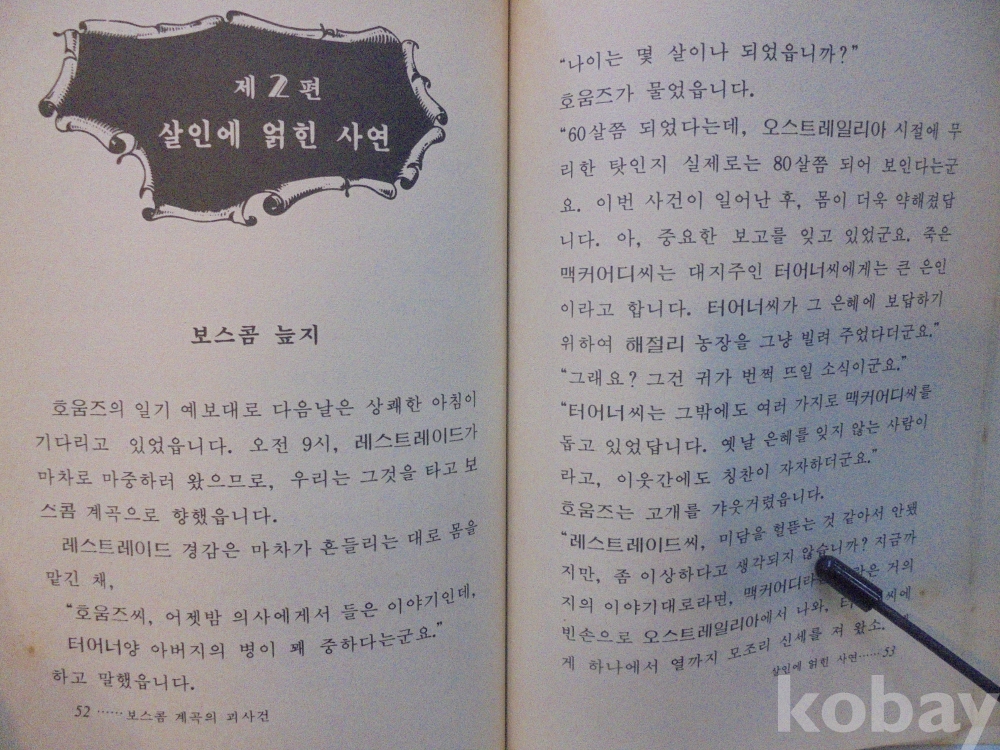 제2편
살인에 얽힌 사연
보스콤 늪지
호움즈의 일기 예보대로 다음날은 상쾌한 아침이
기다리고 있었읍니다. 오전 9시, 레스트레이드가
마차로 마중하러 왔으므로, 우리는 그것을 타고 보
스콤 계곡으로 향했읍니다.
레스트레이드 경감은 마차가 흔들리는 대로 몸을
맡긴 채,
“호움즈씨, 어젯밤 의사에게서 들은 이야기인데,
터어너양 아버지의 병이 꽤 중하다는군요.”
하고 말했읍니다.
52 …… 보스콤 계곡의 괴사건
“나이는 몇 살이나 되었읍니까?”
호움즈가 물었읍니다.
“60살쯤 되었다는데, 오스트레일리아 시절에 무
리한 탓인지 실제로는 80살쯤 되어 보인다는군
요. 이번 사건이 일어난 후, 몸이 더욱 약해졌답
니다. 아, 중요한 보고를 잊고 있었군요. 죽은
맥커어디씨는 대지주인 터어너씨에게는 큰 은인
이라고 합니다. 터어너씨가 그 은혜에 보답하기
위하여 해절리 농장을 그냥 빌려 주었다더군요.”
“그래요? 그건 귀가 번쩍 뜨일 소식이군요.”
“터어너씨는 그밖에도 여러 가지로 맥커어디씨를
돕고 있었답니다. 옛날 은혜를 잊지 않는 사람이
라고, 이웃간에도 칭찬이 자자하더군요.”
호움즈는 고개를 갸웃거렸읍니다.
“레스트레이드씨, 미담을 헐뜯는 것 같아서 안됐
지만, 좀 이상하다고 생각되지 않습니까? 지금까
지의 이야기대로라면, 거의
빈손으로 오스트레일리아에서 나와,
게 하나에서 열까지 모조리 신세를 져 왔소.
살인에 얽힌 사연 …… 53
kobay